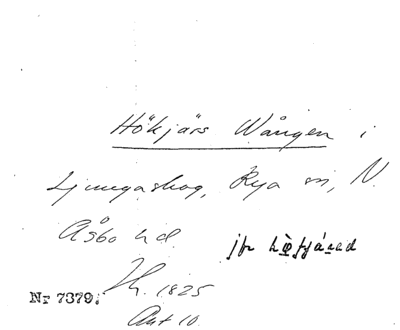 Hökjärs Wången i
Ljungaskog, Rya sn, N.
Åsbo hd.
jfr
1825
Nr 7379.
Akt 10